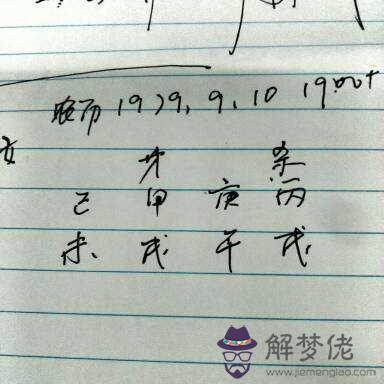 农历1979,9,10 1900+
女
才 杀
己 甲 庚 丙
未、戌 午 戌
解梦佬
www.jiemenglao.com